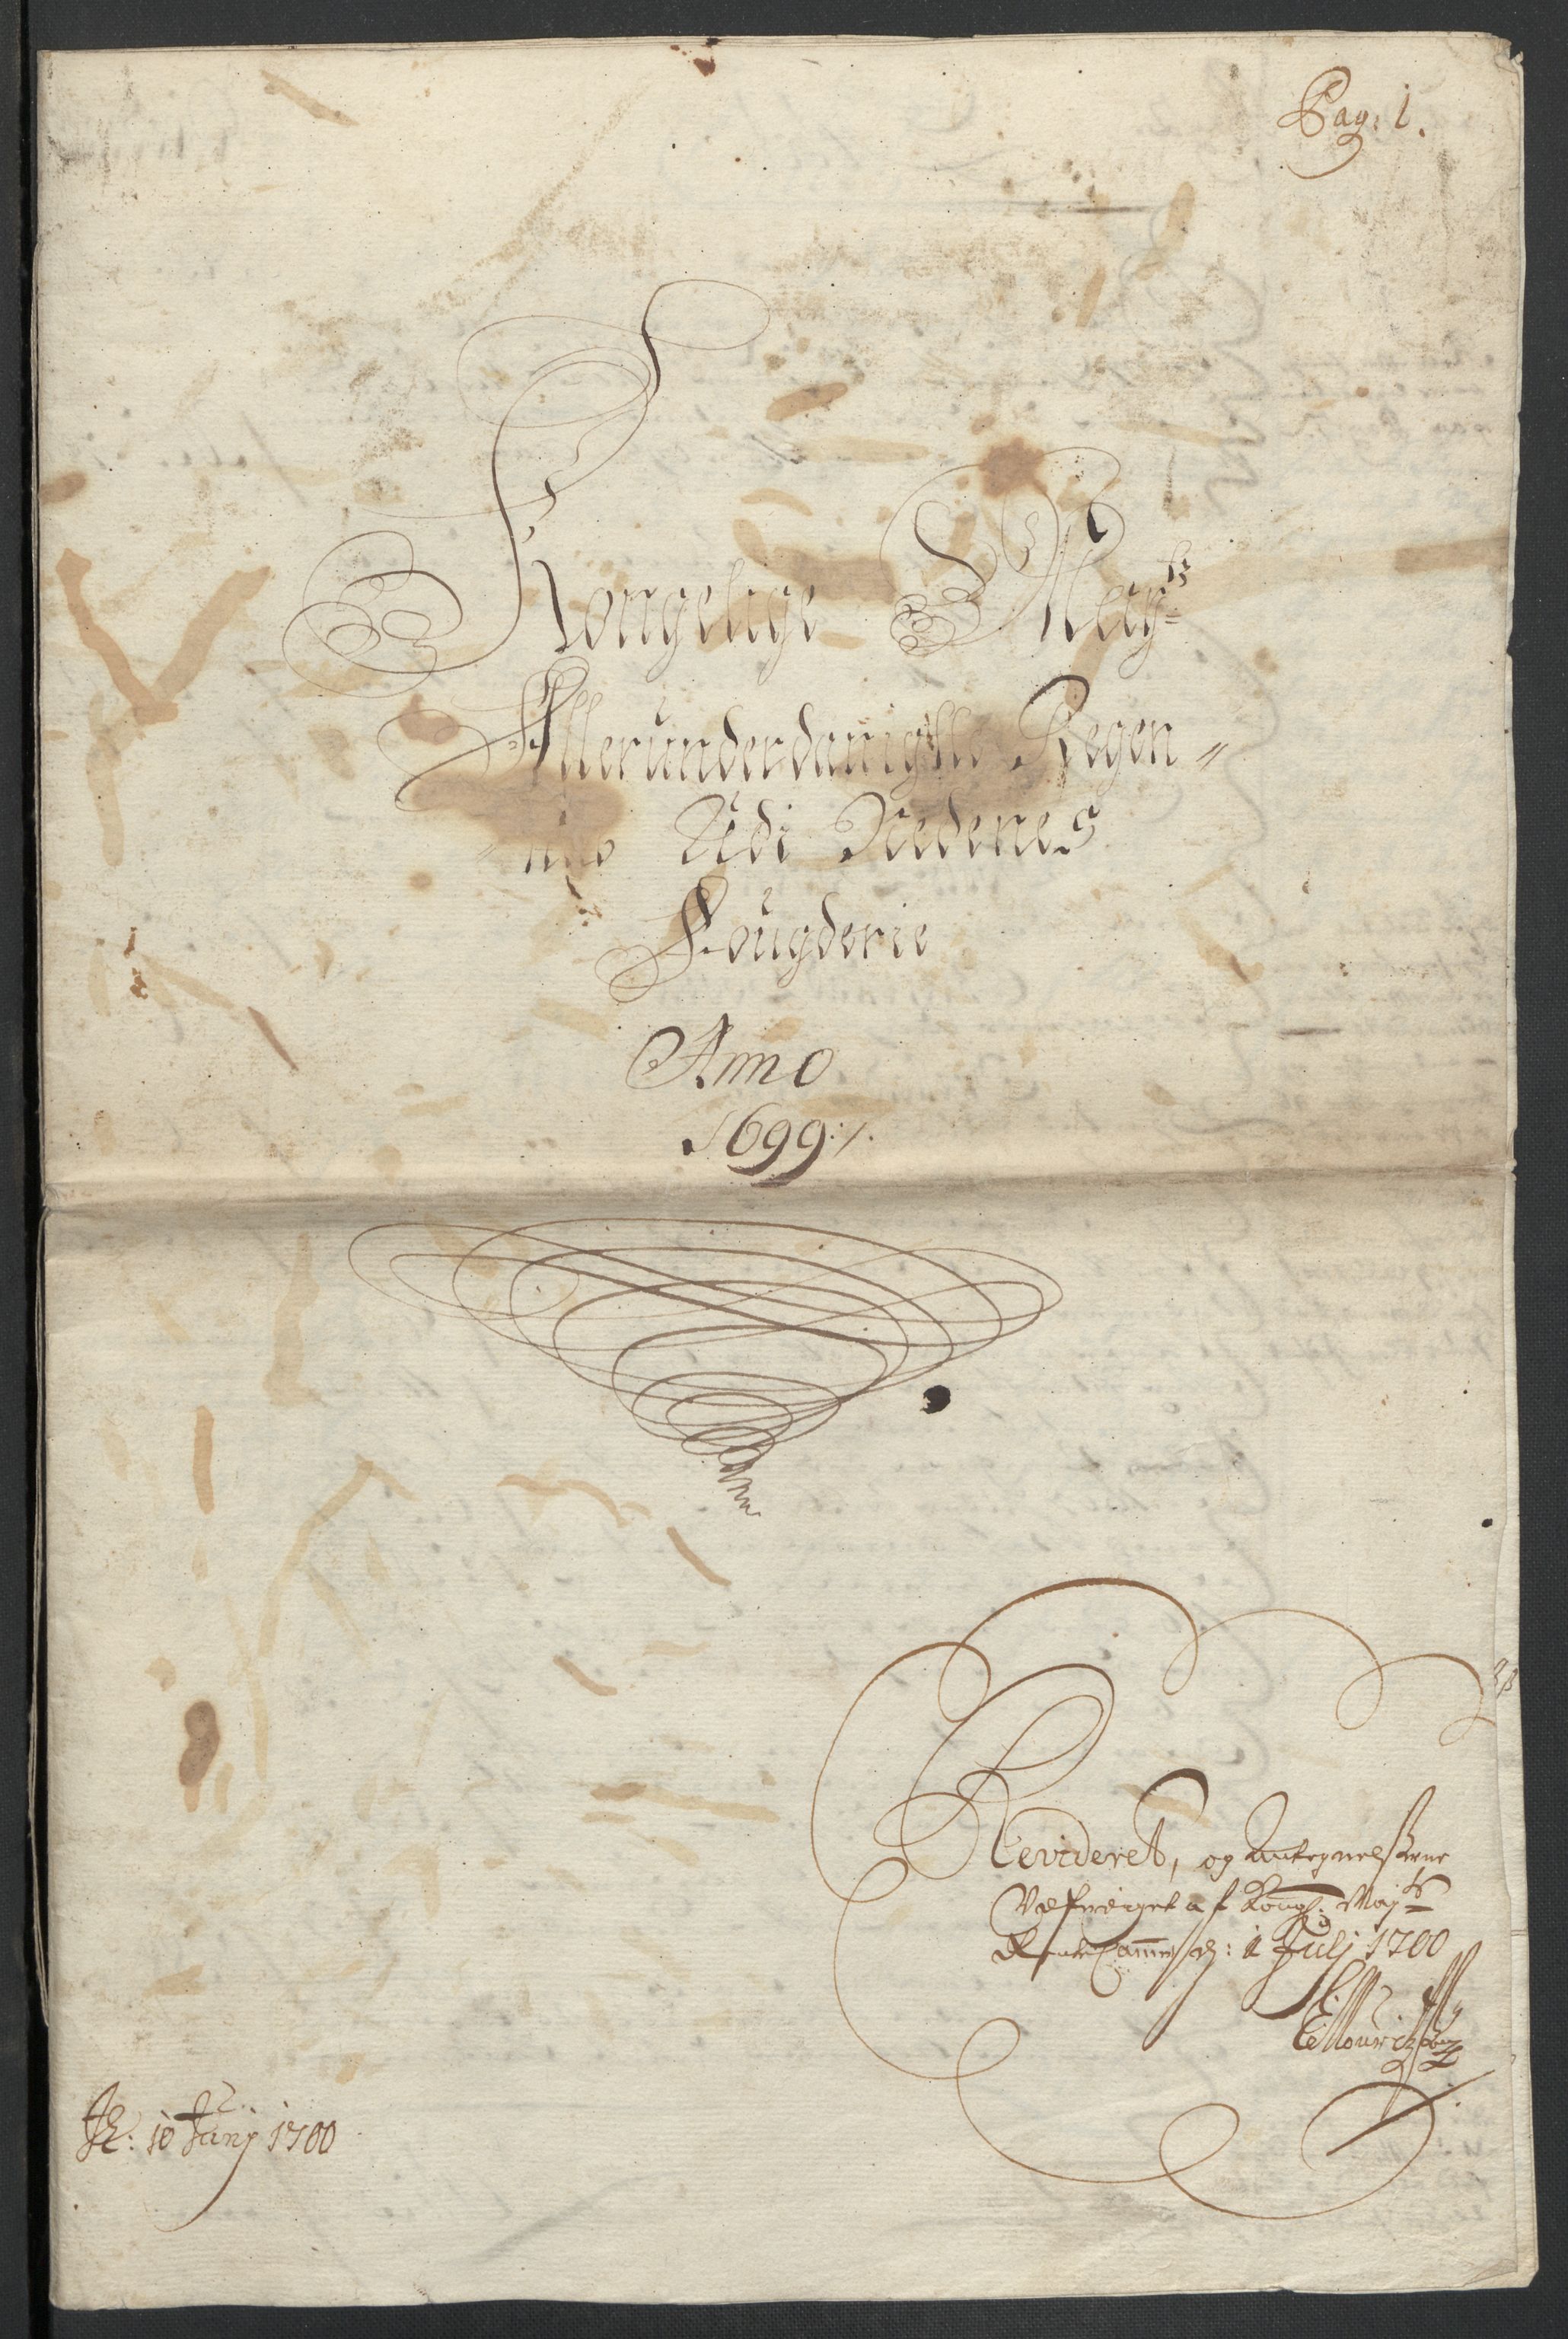 Pag: 1.
Kongelige Mayts
Allerunderdanigste Regen〃
Udi Nedenes
Fougderie
Anno
1699:/.
Revideret, og Antegnelserne
af Kongl: Mayts
Rente Cammer d: 1 Julj 1700
10 Junj 1700